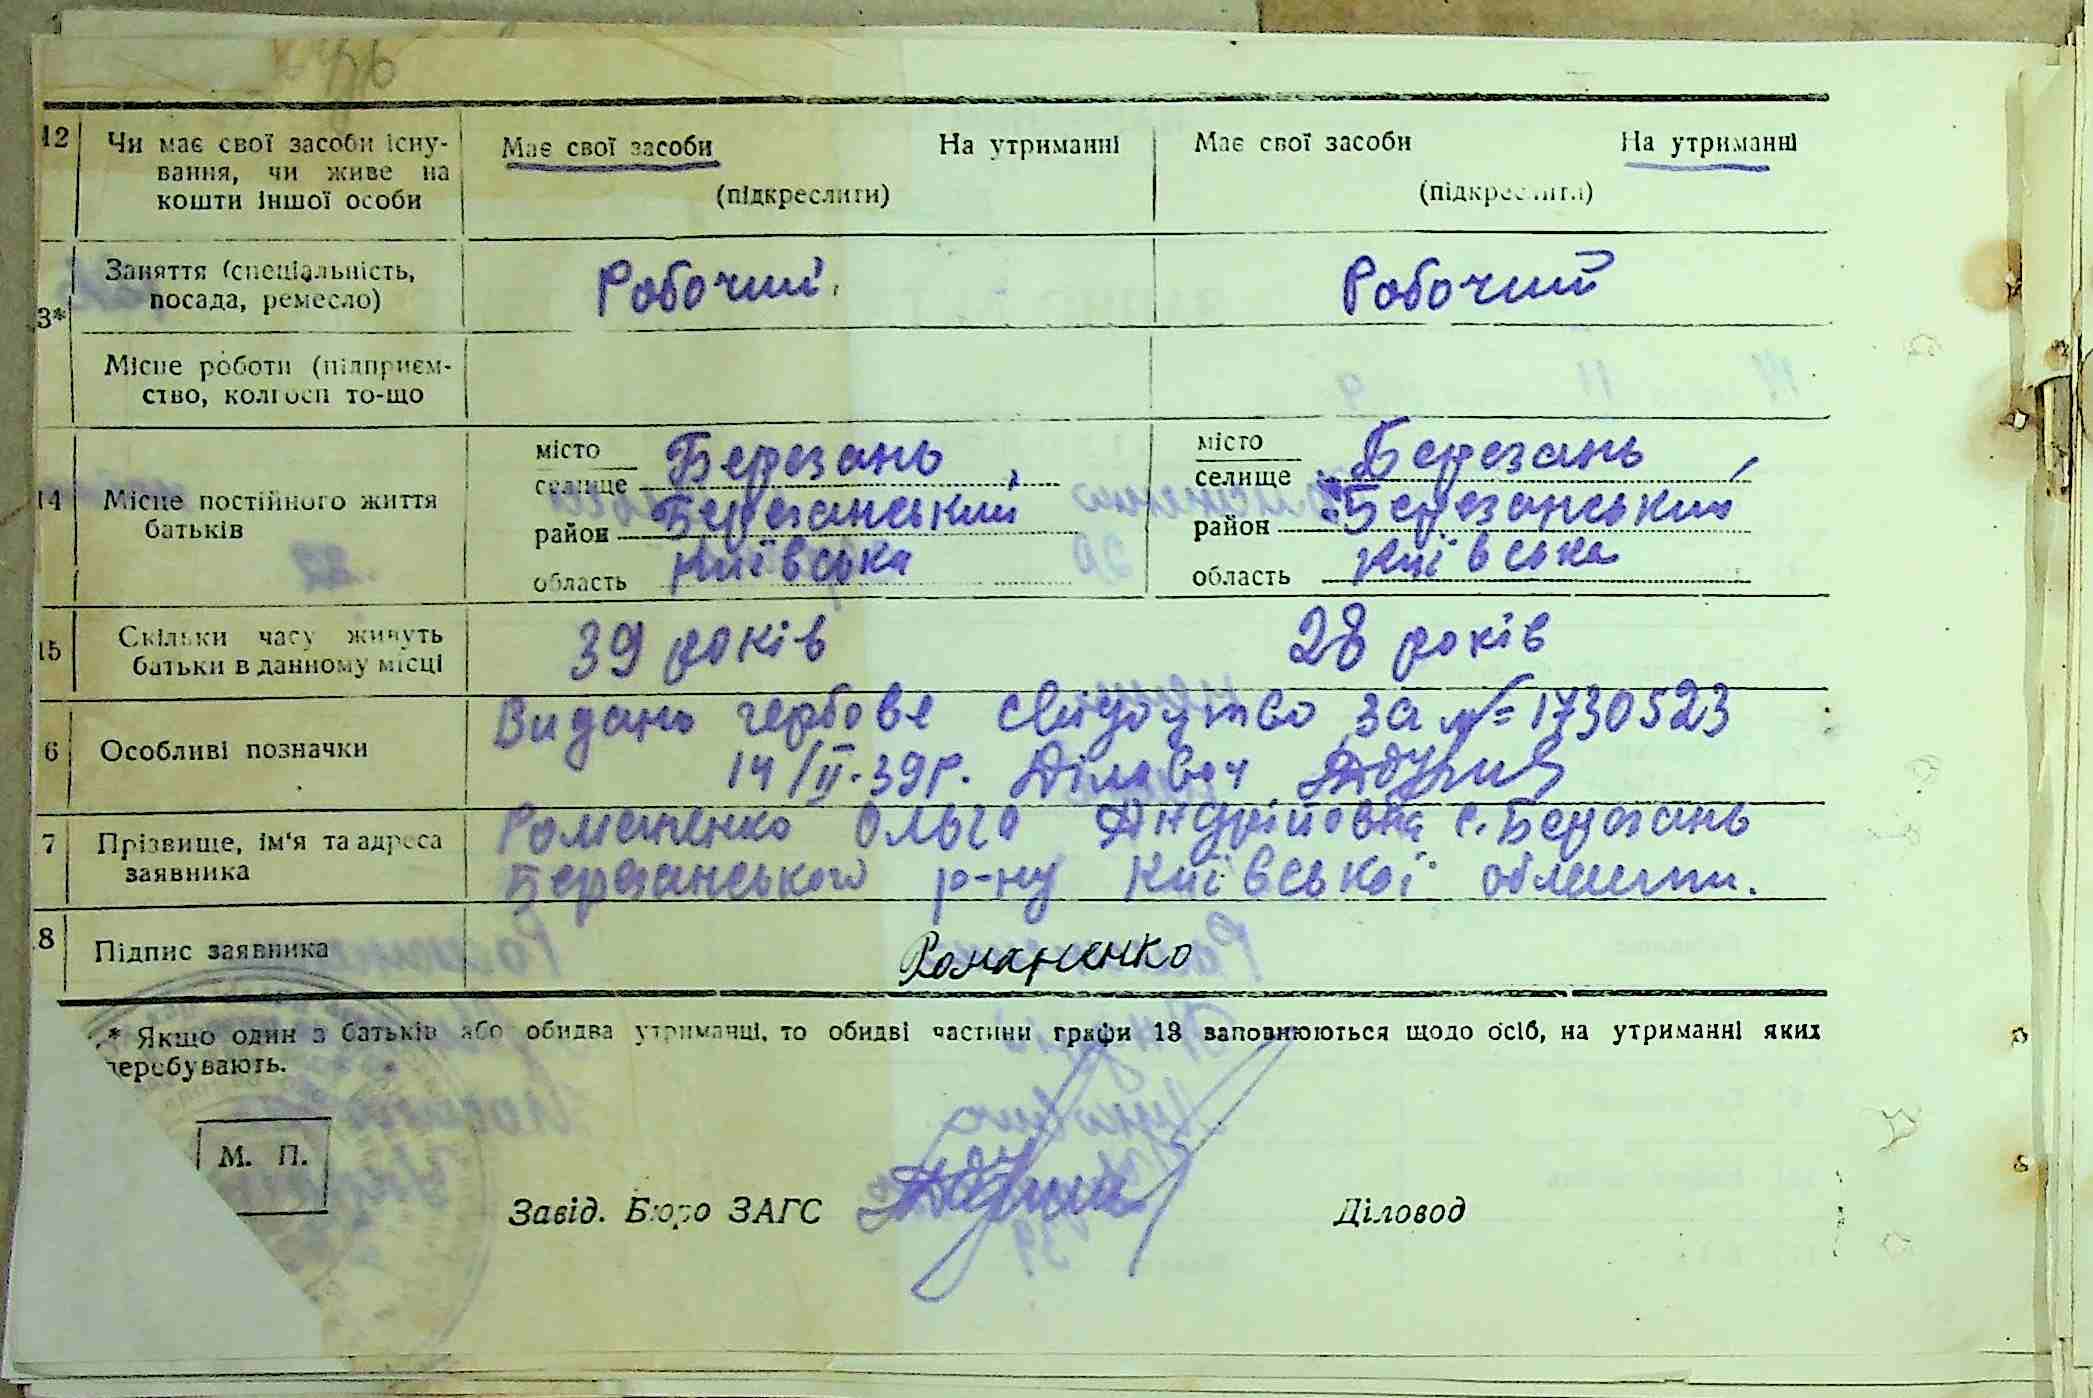 12 Чи має свої засоби існу-
вання, чи живе на
кошти іншої особи
Має свої засоби На утриманні
(підкреслити)
Має свої засоби На утриманні
(підкреслити)
3* Заняття (спеціальність,
посада, ремесло)
Робочий
Робочий
Місце роботи (підприєм-
ство, колгосп то-що
14 Місце постійного життя
батьків
місто
селище Березань
район Березанський
область Київська
місто
селище Березань
район Березанський
область Київська
15 Скільки часу живуть
батьки в данному місці
39 років
28 років
6 Особливі позначки
Видано гербове свидоцтво за №=1730523
14/II.39р. Діловод
7 Прізвище, ім'я та адреса
заявника
Романенко Ольга Андріївна с. Березань
Березанського р-ну Київської области.
8 Підпис заявника
Романенко
* Якщо один з батьків або обидва утриманці, то обидві частини графи 13 заповнюються щодо осіб, на утриманні яких
перебувають.
М. П.
Завід. Бюро ЗАГС
Діловод